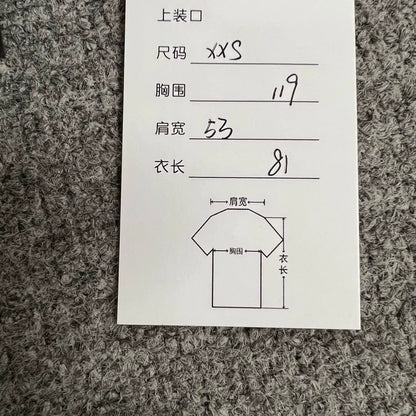 上装口
尺码 XXS
胸围 119
肩宽 53
衣长 81
肩宽
胸围
衣长